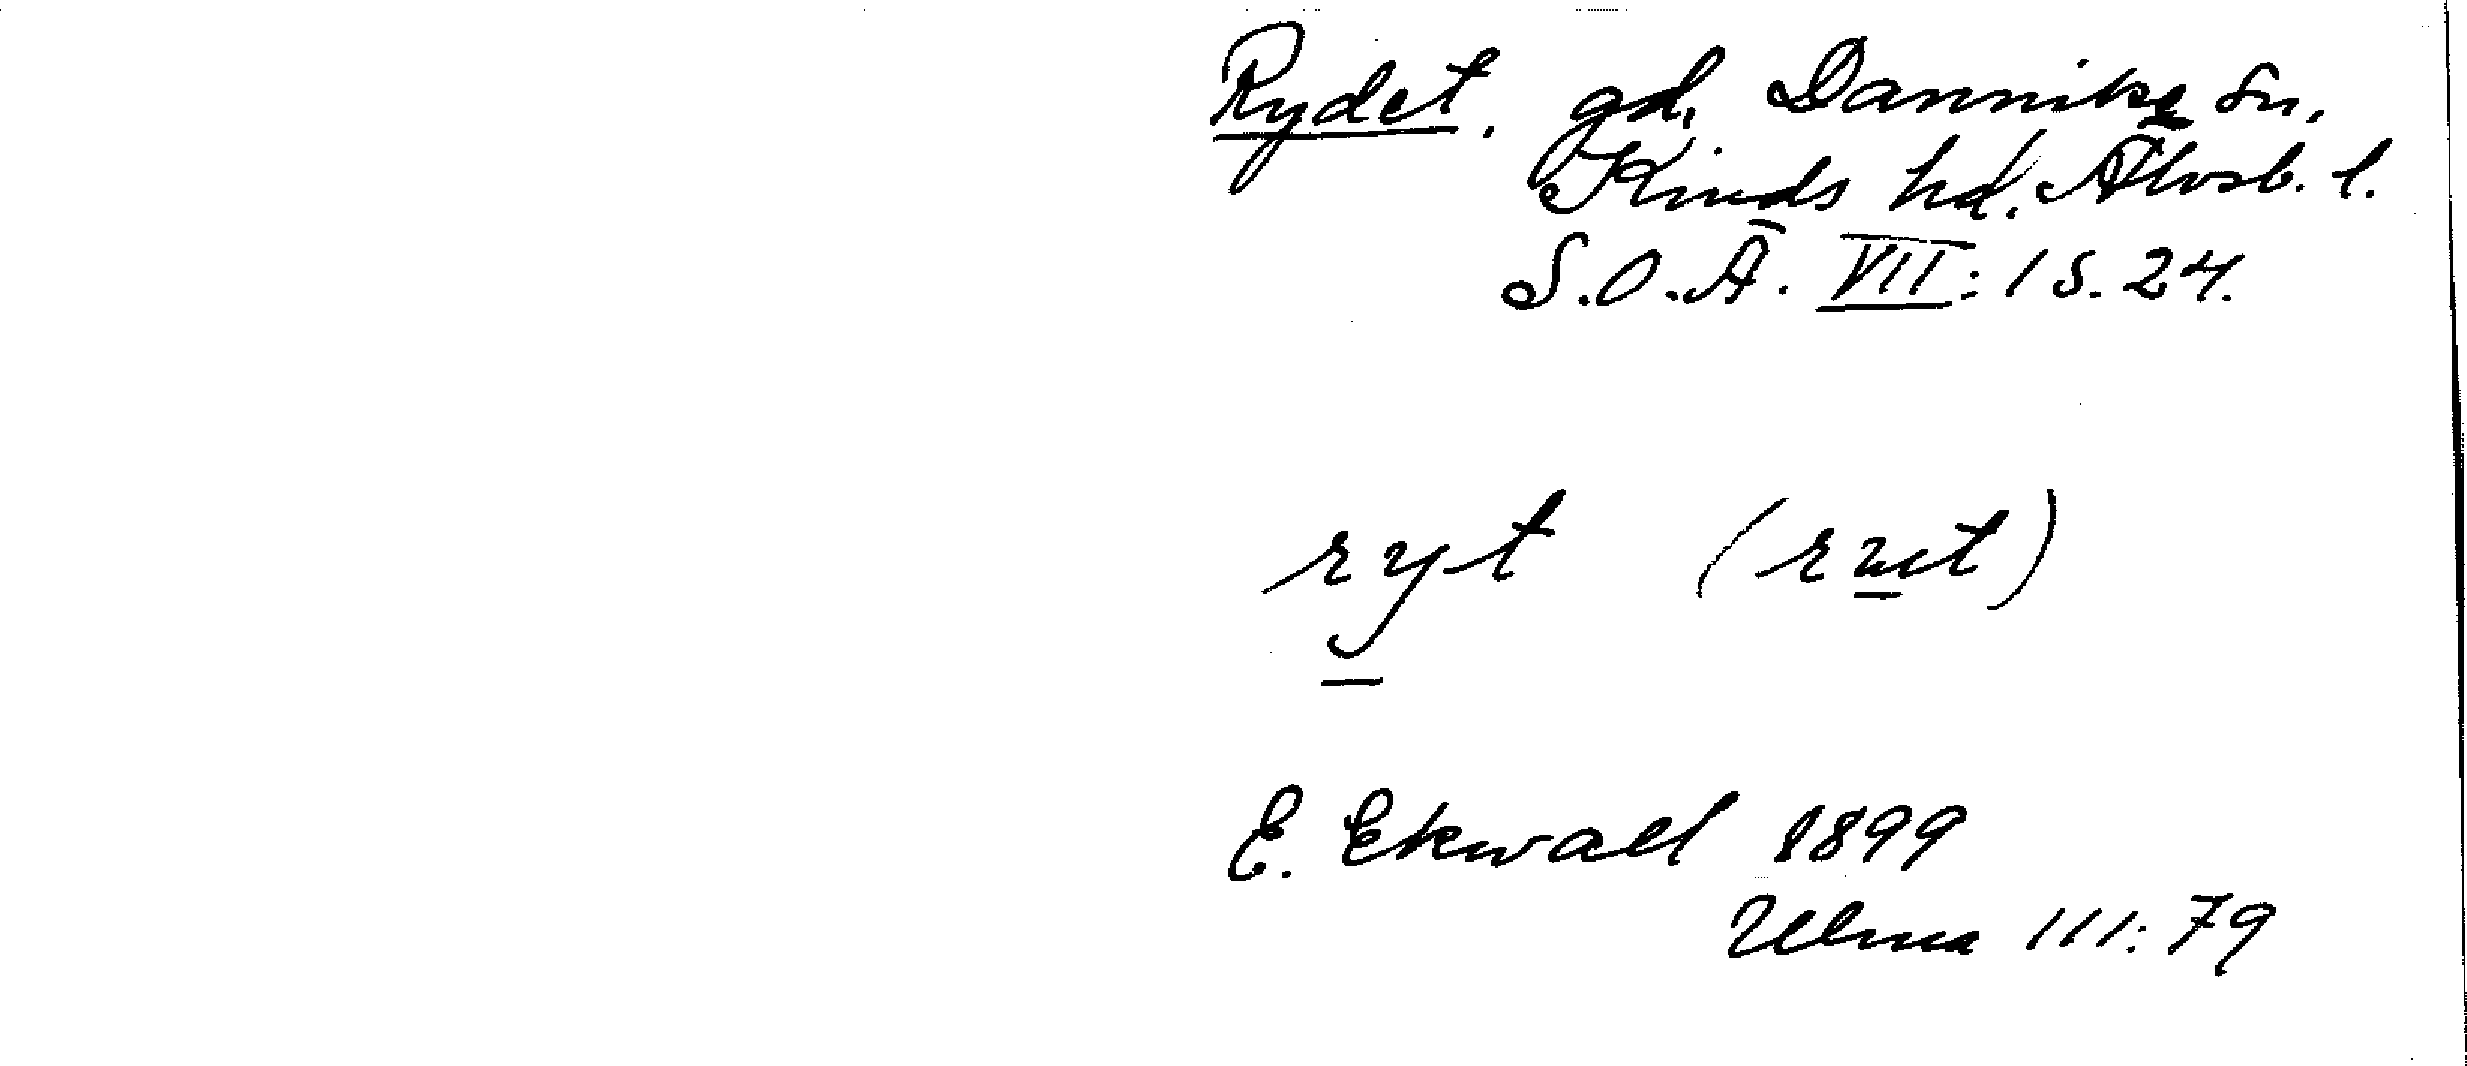 Rydet. gd, Dannike sn,
Kinds hd. Älvsb. l.
S.O.Ä. VII: 1 s. 24.
ryt (rut)
E. Ekwall 1899
Ulma 111: 79